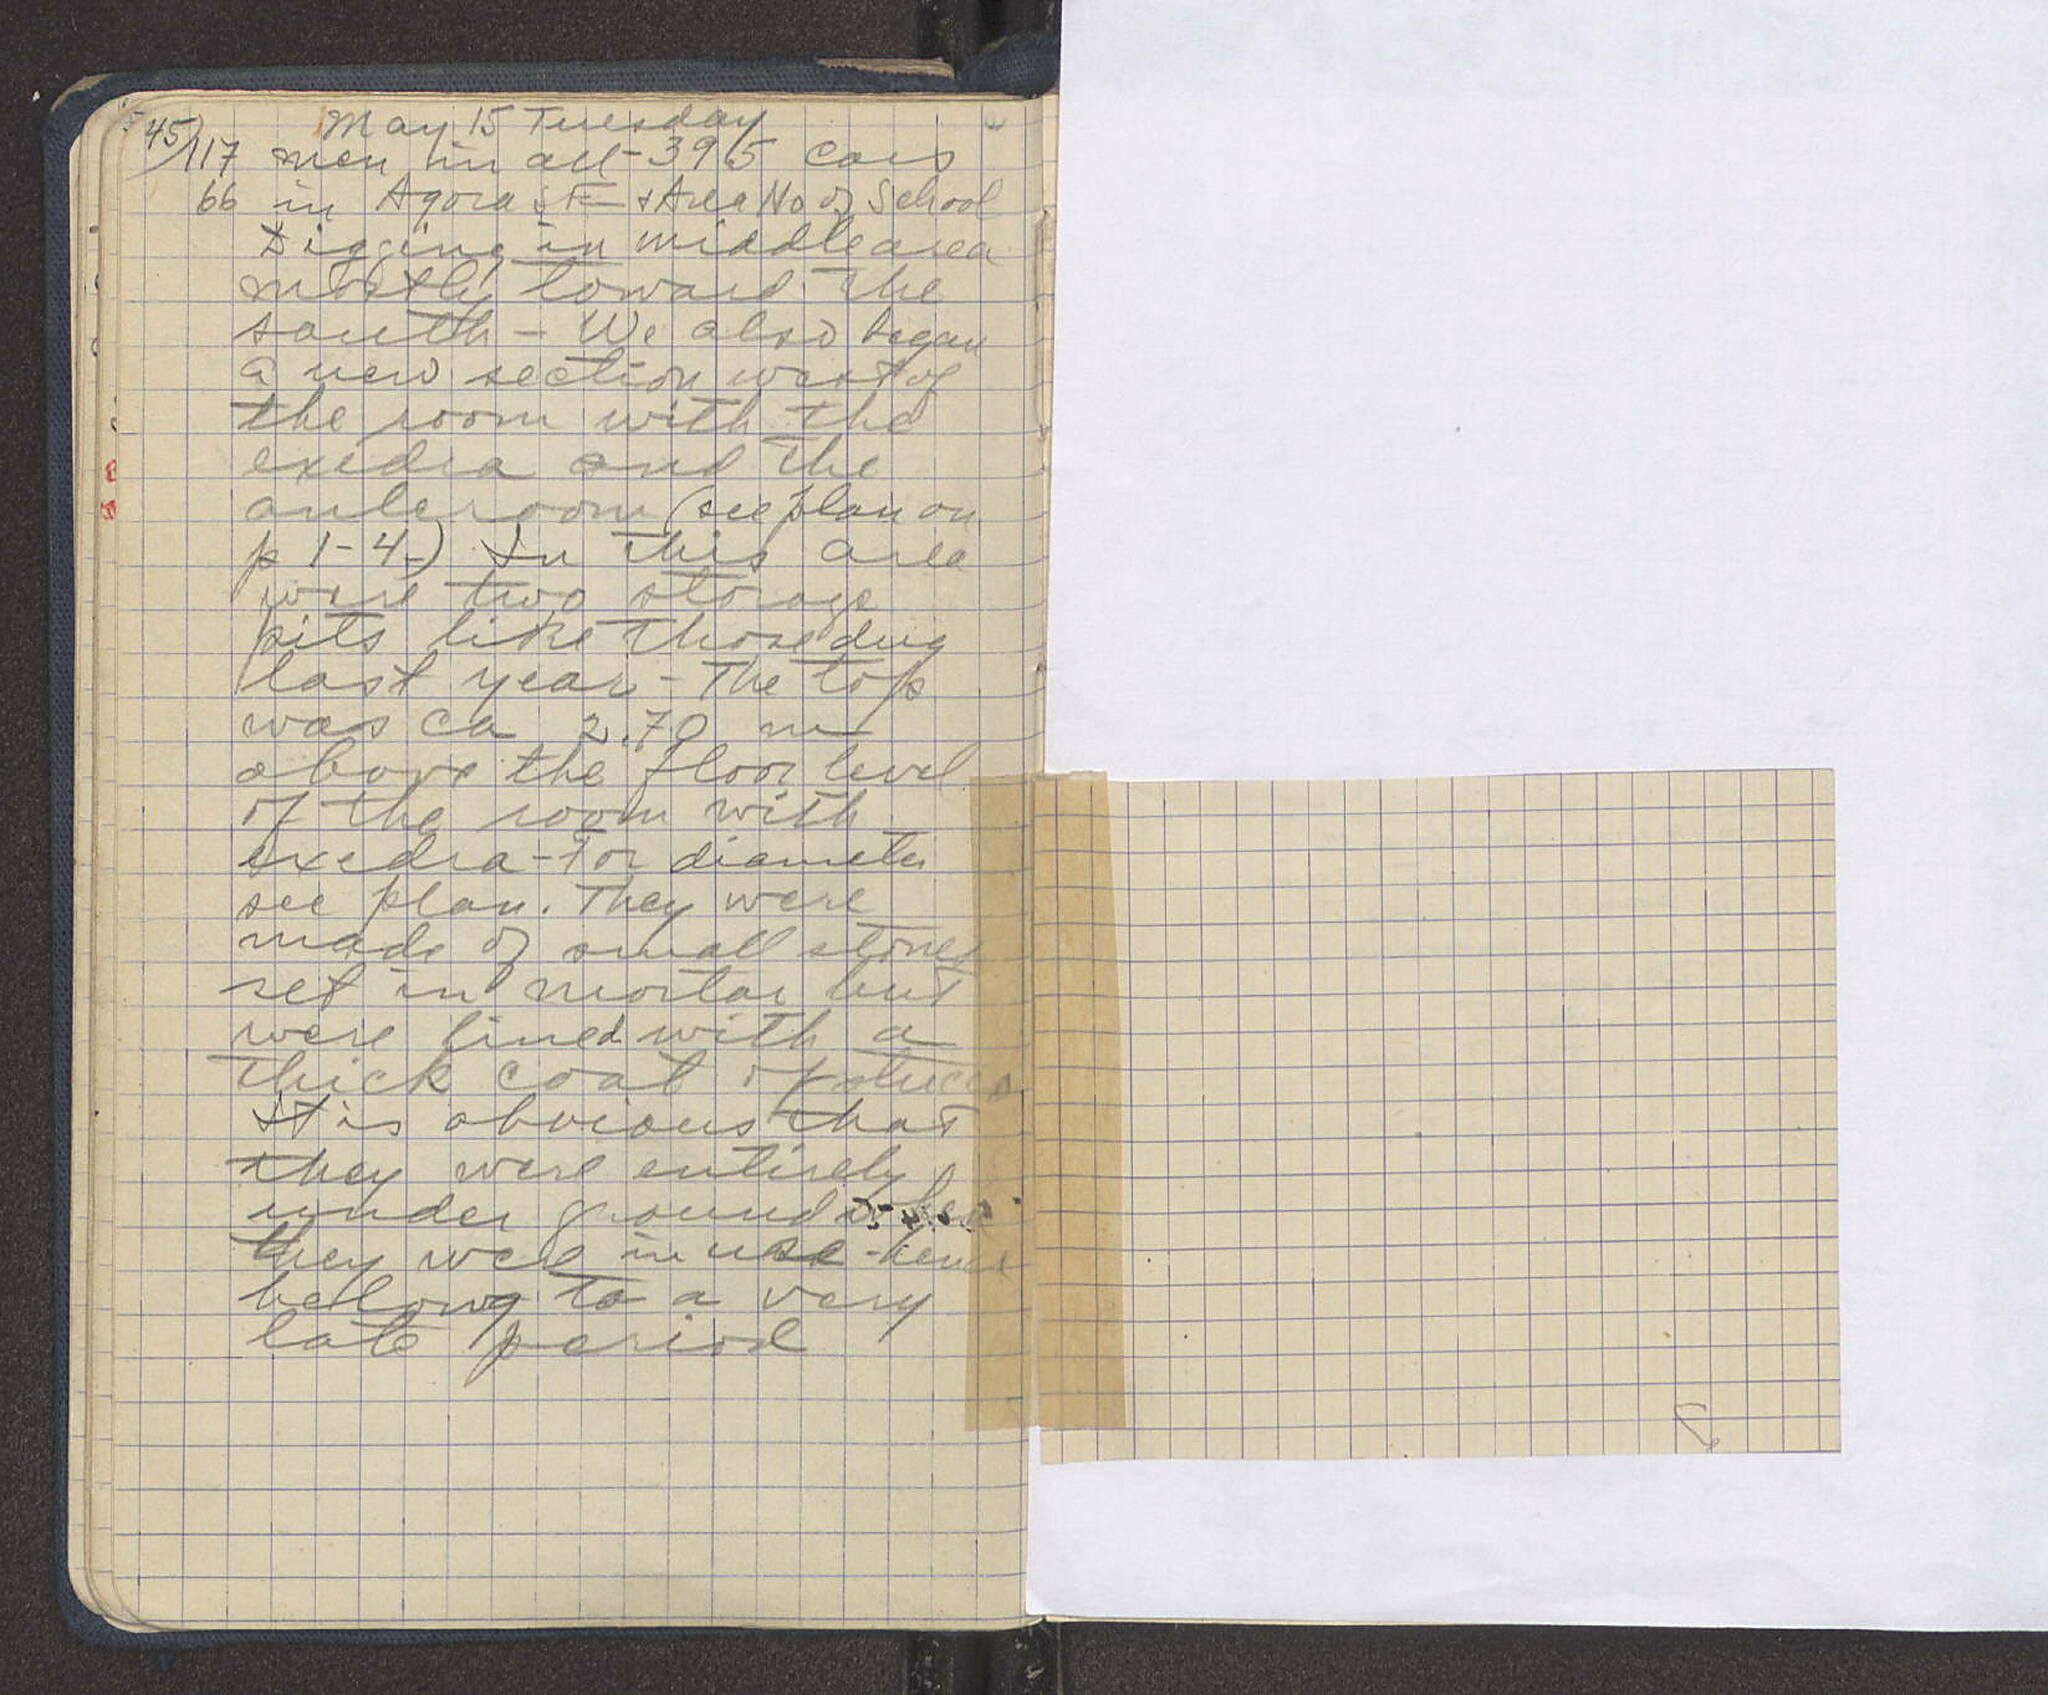 45) May 15 Tuesday
117 men in all - 395 cars
66 in Agora & E + Area No of School
Digging in middle area
mostly toward the
south - We also began
a new section west of
the room with the
exedra and the
anteroom (see plan on
p 1-4-) In this area
were two storage
pits like those dug
last year - The top
was ca 2.70 m
above the floor level
of the room with
exedra - For diameter
see plan. They were
made of small stones
set in mortar but
were lined with a
thick coat of stucco
It is obvious that
they were entirely
under ground when
they were in use - hence
belong to a very
late period